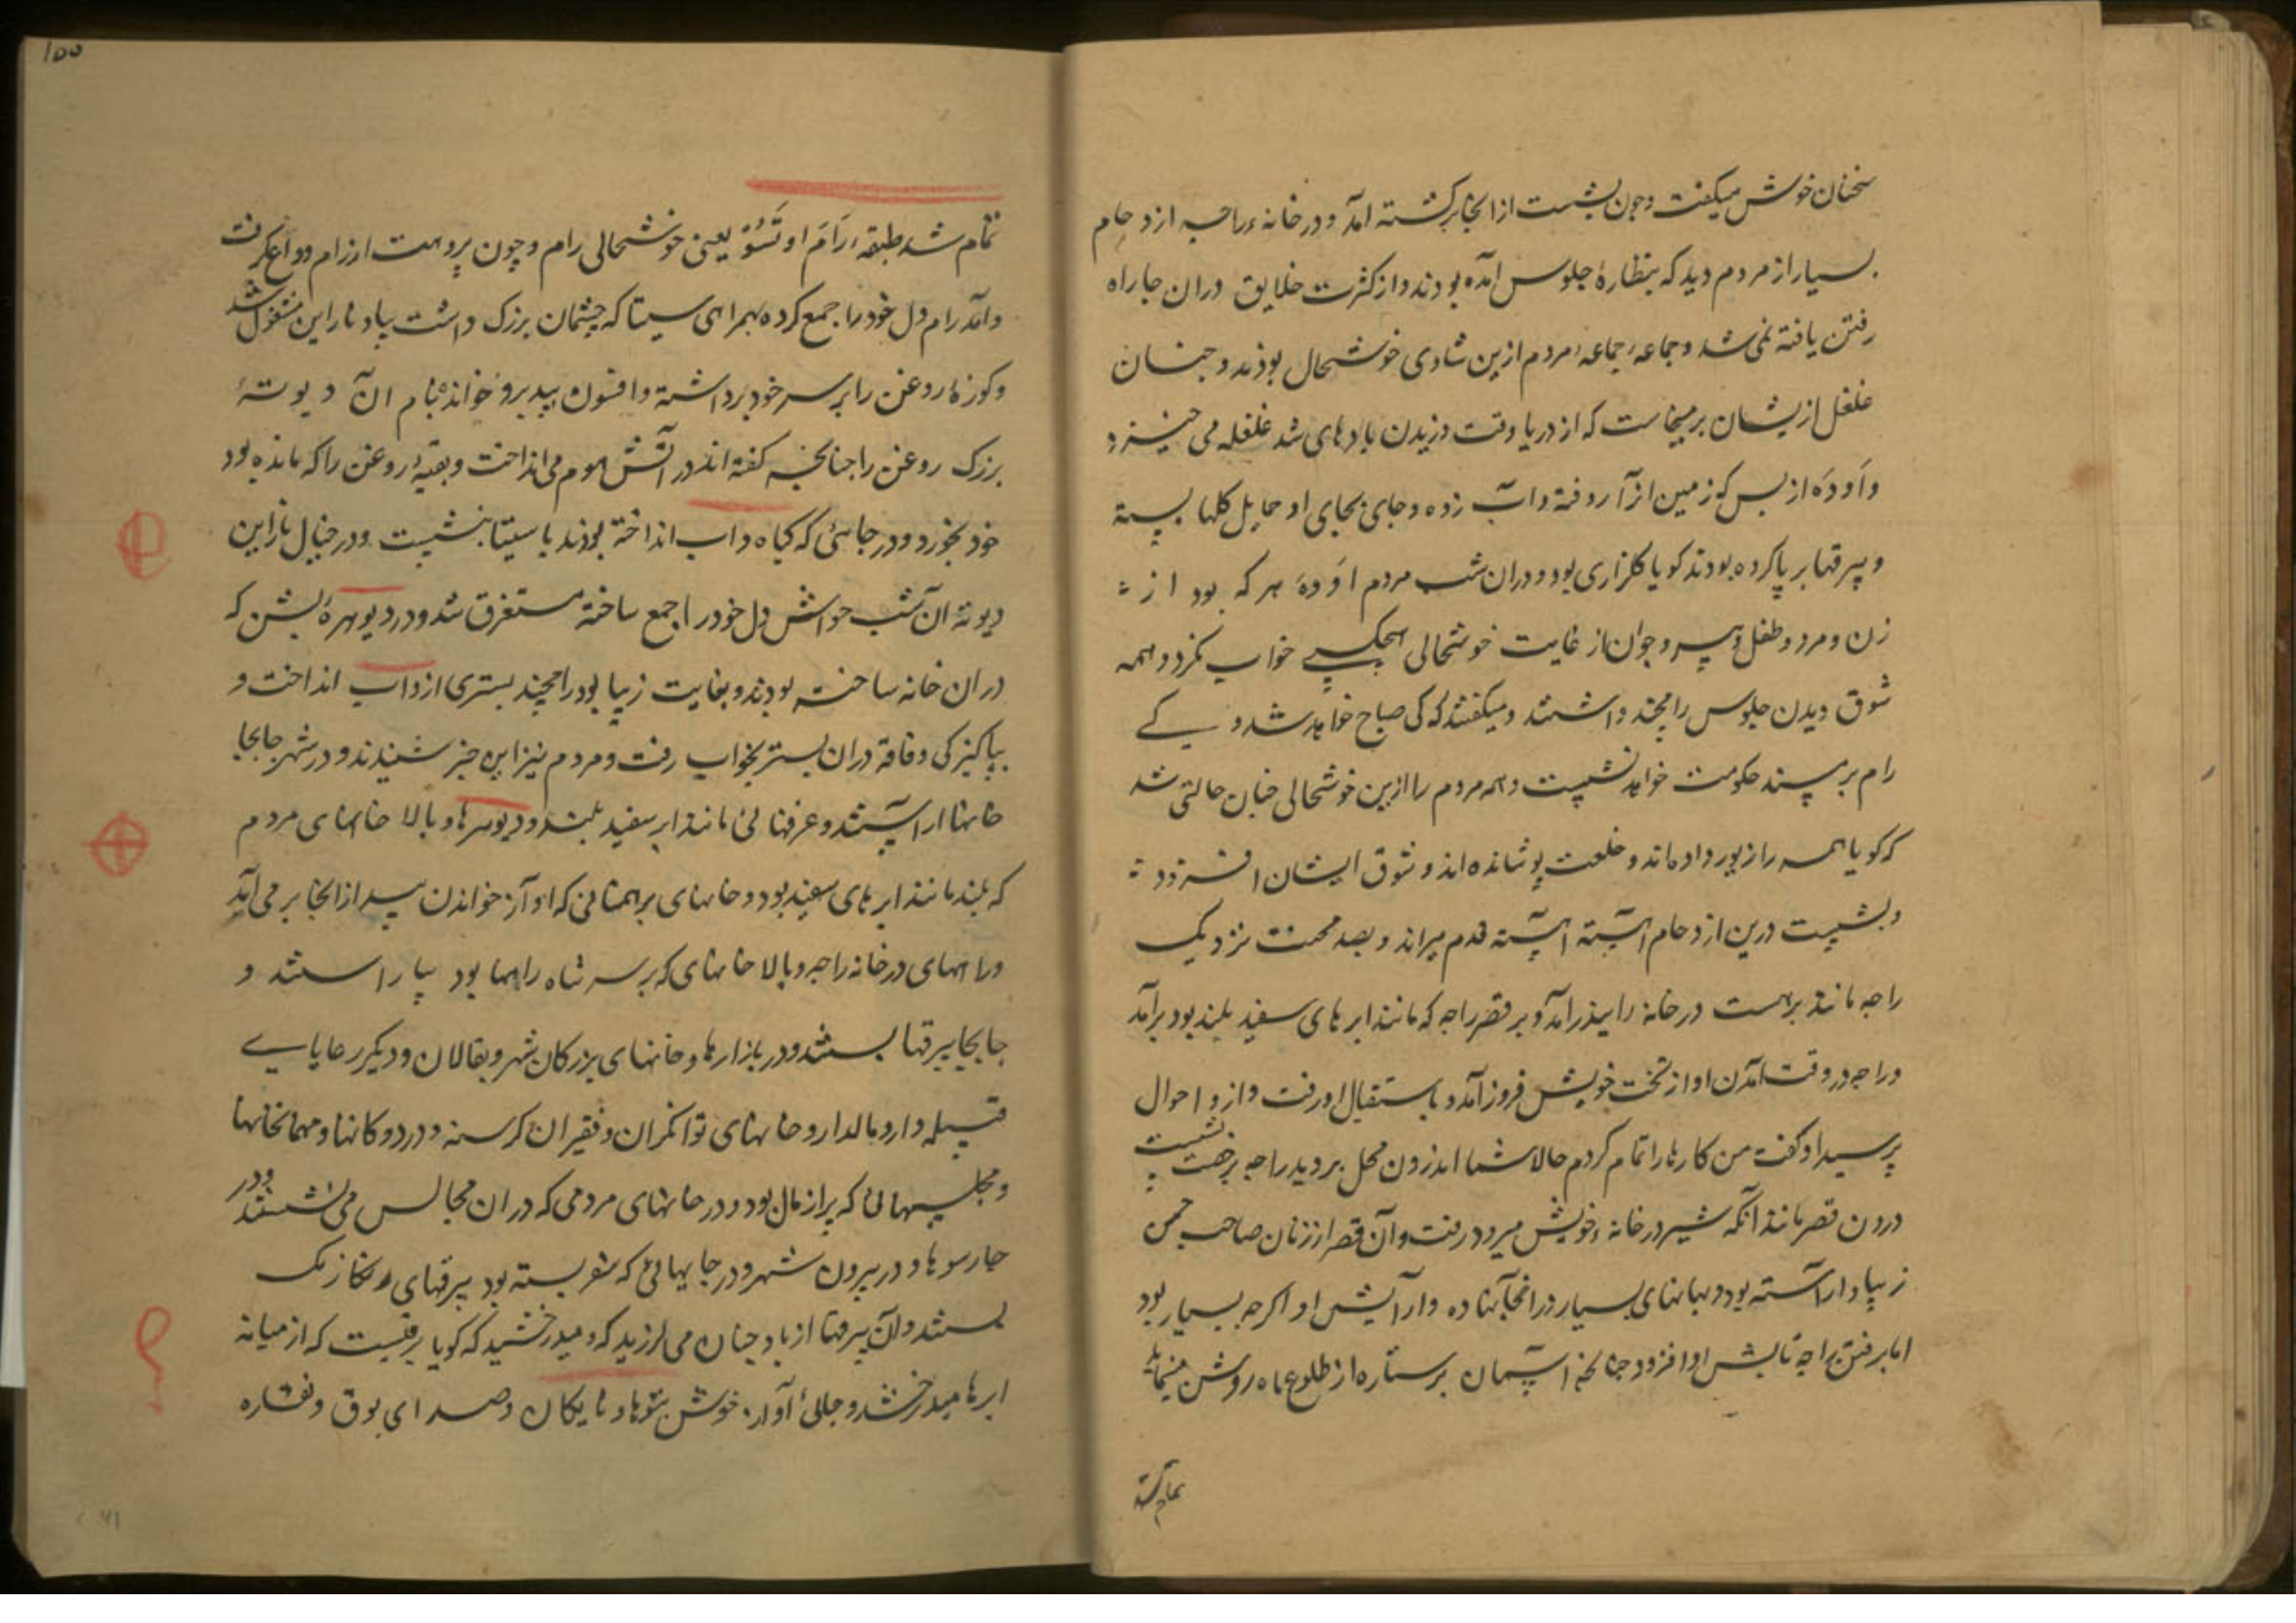 سخنان خوش میکفت و چون بشست از انجا برکشته امد و در خانه راجه ازدحام
بسیار از مردم دید که بنظاره جلوس امده بودند و از کثرت خلایق دران جا راه
رفتن یافته نمی شد و جماعه جماعه مردم ازین شادی خوشحال بودند و چنان
غلغل ازیشان برمیخاست که از دریا وقت وزیدن بادهای شد غلغله می خیزد
و اَودَه از بس که زمین از آ روفته و آب زده و جای بجای او حمایل کلها بسته
و بیرقها بر پا کرده بودند کویا کلزاری بود و دران شب مردم اَودَه هر که بود از
زن و مرد و طفل و پیر و جوان از غایت خوشحالی هیچکسی خواب نکرد و همه
شوق دیدن جلوس رامچند داشتند و میکفتند که کی صباح خواهد شد و کے
رام بر مسند حکومت خواهد نشست و همه مردم را ازین خوشحالی چنان حالتی شد
که کویا همه را زیور داده اند و خلعت پوشانده اند و شوق ایشان افزود
و بشست درین ازدحام آهسته آهسته قدم میراند و بصد محنت نزدیک
راجه مانند برهست در خانه راجه درآمد و بر قصر راجه که مانند ابرهای سفید بلند بود برآمد
و راجه در وقت آمدن او از تخت خویش فروز آمد و باستقبال او رفت و از و احوال
پرسید او کفت من کارها را تمام کردم حالا شما اندرون محل بروید راجه برخصت بشست
درون قصر مانند آنکه شیر در خانه خویش میرود رفت و آن قصر از زنان صاحب حسن
زیبا و اراسته بود و بسیار در انجا نهاده و آرایش او اکرچه بسیار بود
اما برفتن راجه تابش او افزود چنانچه آسمان پرستاره از طلوع ماه روشن مینماید
تمام شد
۱۵۵
تمام شد طبقه رَامَ اوتسَوَ یعنی خوشحالی رام و چون پروهت از رام وداع کرفت
و آمد رام دل خود را جمع کرده بهمراهی سیتا که چشمان بزرک داشت بیاد ناراین مشغول شد
و کوزهٔ روغن را بر سر خود برداشته و افسون بید برو خوانده بنام ان دیوتهٔ
بزرک روغن را چنانچه کفته اند در آتش هوم می انداخت و بقیهٔ روغن را که مانده بود
خود بخورد و در جائی که کیاه داب انداخته بودند با سیتا بنشست و در خیال ناراین
دیوته آن شب حواس دل خود را جمع ساخته مستغرق شد و در دیوهرهٔ بشن که
دران خانه ساخته بودند و بغایت زیبا بود رامچند بستری از داب انداخت و
بپاکیزکی و فاقه دران بستر بخواب رفت و مردم نیز این خبر شنیدند و در شهر جابجا
خانها اراستند و غرفهائی مانند ابر سفید بلند و دیوهرها و بالا خانهای مردم
که بلند مانند ابرهای سفید بود و خانهای برهمنانی که اواز خواندن بید از انجا بر می آمد
و راههای در خانه راجه و بالا خانهای که بر سر شاه راهها بود بیاراستند و
جابجا بیرقها بستند و در بازارها و خانهای بزرکان شهر و بقالان و دیکر رعایاے
قبیله دار و مالدار و خانهای توانکران و فقیران کرسنه و در دوکانها و مهمانخانها
و مجلسهائی که پر از مال بود و در خانهای مردمی که دران مجالس می نشستند و در
چارسوها و در بیرون شهر و در جایهائی که بسته بود بیرقهای رنکارنک
بستند و آن بیرقها از باد چنان می لرزید که و میدرخشید که کویا برقیست که از میانه
ابرها میدرخشد و جائی آواز خوش نتوها و نایکان و صدای بوق و نقاره